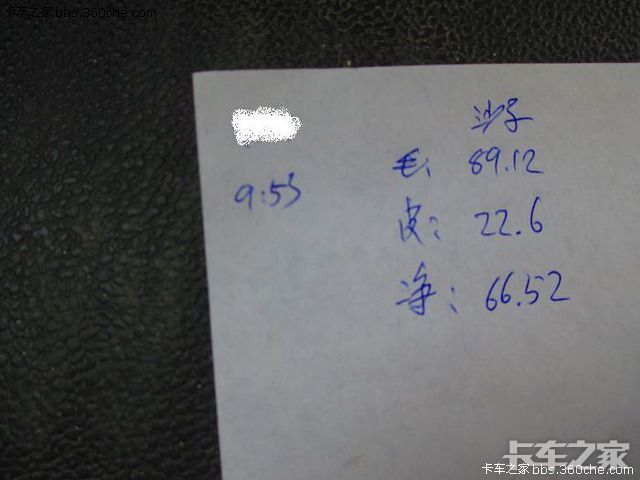 卡车之家 bbs.360che.com
沙子
毛: 89.12
9:53
皮: 22.6
净: 66.52
卡车之家
卡车之家 bbs.360che.com